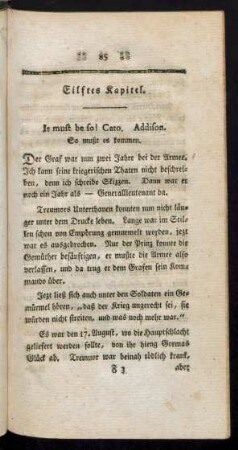 85
Eilftes Kapitel.
It must be so! Cato, Addison.
So mußt es kommen.
Der Graf war nun zwei Jahre bei der Armee.
Ich kann seine kriegerischen Thaten nicht beschrei-
ben, denn ich schreibe Skizzen. Dann war er
noch ein Jahr als — Generallieutenant da.
Treumors Unterthanen konnten nun nicht län-
ger unter dem Drucke leben. Lange war im Stil-
len schon von Empörung gemurmelt worden, jezt
war es ausgebrochen. Nur der Prinz konnte die
Gemüther besänftigen, er mußte die Armee also
verlassen, und da trug er dem Grafen sein Kom-
mando über.
Jezt ließ sich auch unter den Soldaten ein Ge-
murmel hören, „daß der Krieg ungerecht sei, sie
würden nicht streiten, und was noch mehr war.“
Es war den 17. August, wo die Hauptschlacht
geliefert werden sollte, von ihr hieng Germas
Glück ab. Treumor war beinah tödlich krank,
F 3
aber